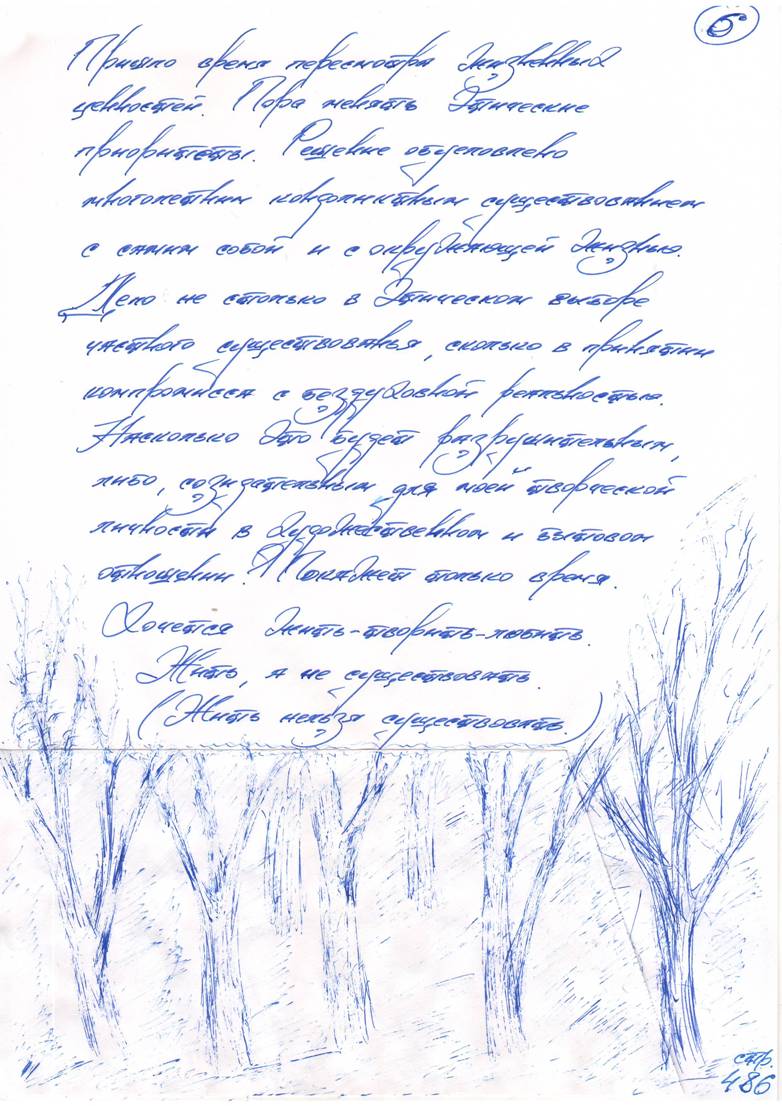 6
Пришло время пересмотра жизненных
ценностей. Пора менять Этические
приоритеты. Решение обусловлено
многолетним конфликтным существованием
с самим собой и с окружающей жизнью.
Дело не столько в Этическом выборе
частного существованья, сколько в принятии
компромисса с бездуховной реальностью.
Насколько это будет разрушительным,
либо, созидательным для моей творческой
личности в художественном и бытовом
отношении? Покажет только время.
Хочется жить-творить-любить.
Жить, а не существовать.
(Жить нельзя существовать.)
стр.
486